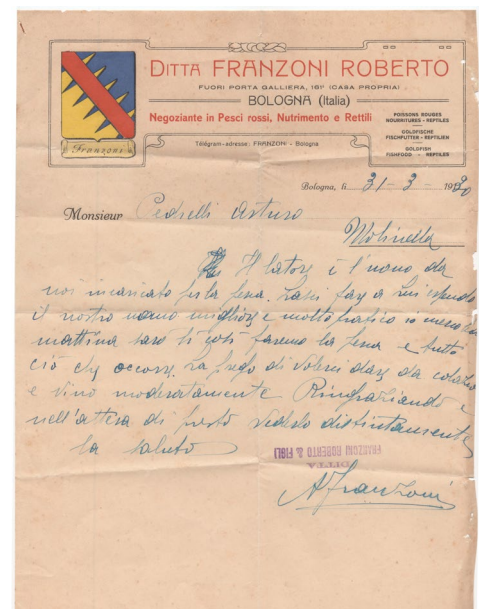 DITTA FRANZONI ROBERTO
FUORI PORTA GALLIERA, 161 (CASA PROPRIA)
BOLOGNA (Italia)
Negoziante in Pesci rossi, Nutrimento e Rettili
Télégram-adresse: FRANZONI - Bologna
POISSONS ROUGES
NOURRITURES - REPTILES
GOLDFISCHE
FISCHFUTTER - REPTILIEN
GOLDFISH
FISHFOOD - REPTILES
Franzoni
Bologna, li 31-3-19
Monsieur Pedrelli Arturo
Molinella
Il latore è l'uomo da
noi incaricato per la pesa. Lasci fare a lui essendo
il nostro uomo migliore e molto pratico io
mattina sarò lì così faremo la pesa e tutto
ciò che occorre. La prego di volersi dare da
e vino moderatamente Ringraziando e
nell'attesa di presto vederlo distintamente
la saluto
DITTA
FRANZONI ROBERTO & FIGLI
A Franzoni